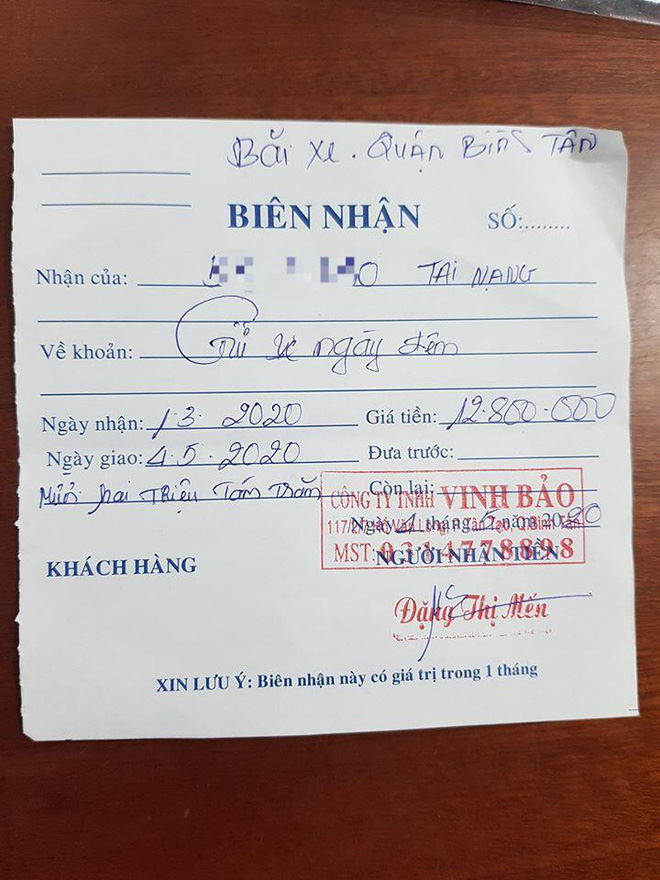 Bãi xe. QUẬN BÌNH TÂN
BIÊN NHẬN
SỐ:.........
Nhận của: TAI NẠNG
Về khoản: Gửi xe ngày đêm
Ngày nhận: 1.3. 2020 Giá tiền: 12.800.000
Ngày giao: 4.5.2020 Đưa trước:
Mười hai Triệu Tám Trăm Còn lại:
CÔNG TY TNHH VINH BẢO
Ngày tháng 5 năm 2020
MST: 0314778898
NGƯỜI NHẬN TIỀN
KHÁCH HÀNG
Đặng Thị Mến
XIN LƯU Ý: Biên nhận này có giá trị trong 1 tháng